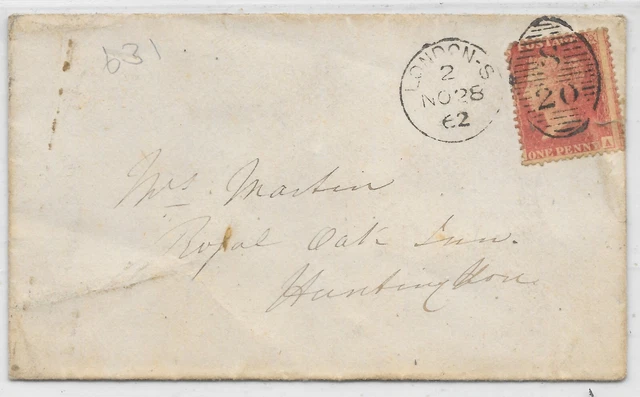 631
LONDON-S
2
NO 28
62
POSTAGE
S
20
ONE PENNY
A
Mrs Martin
Royal Oak Inn.
Huntingdon